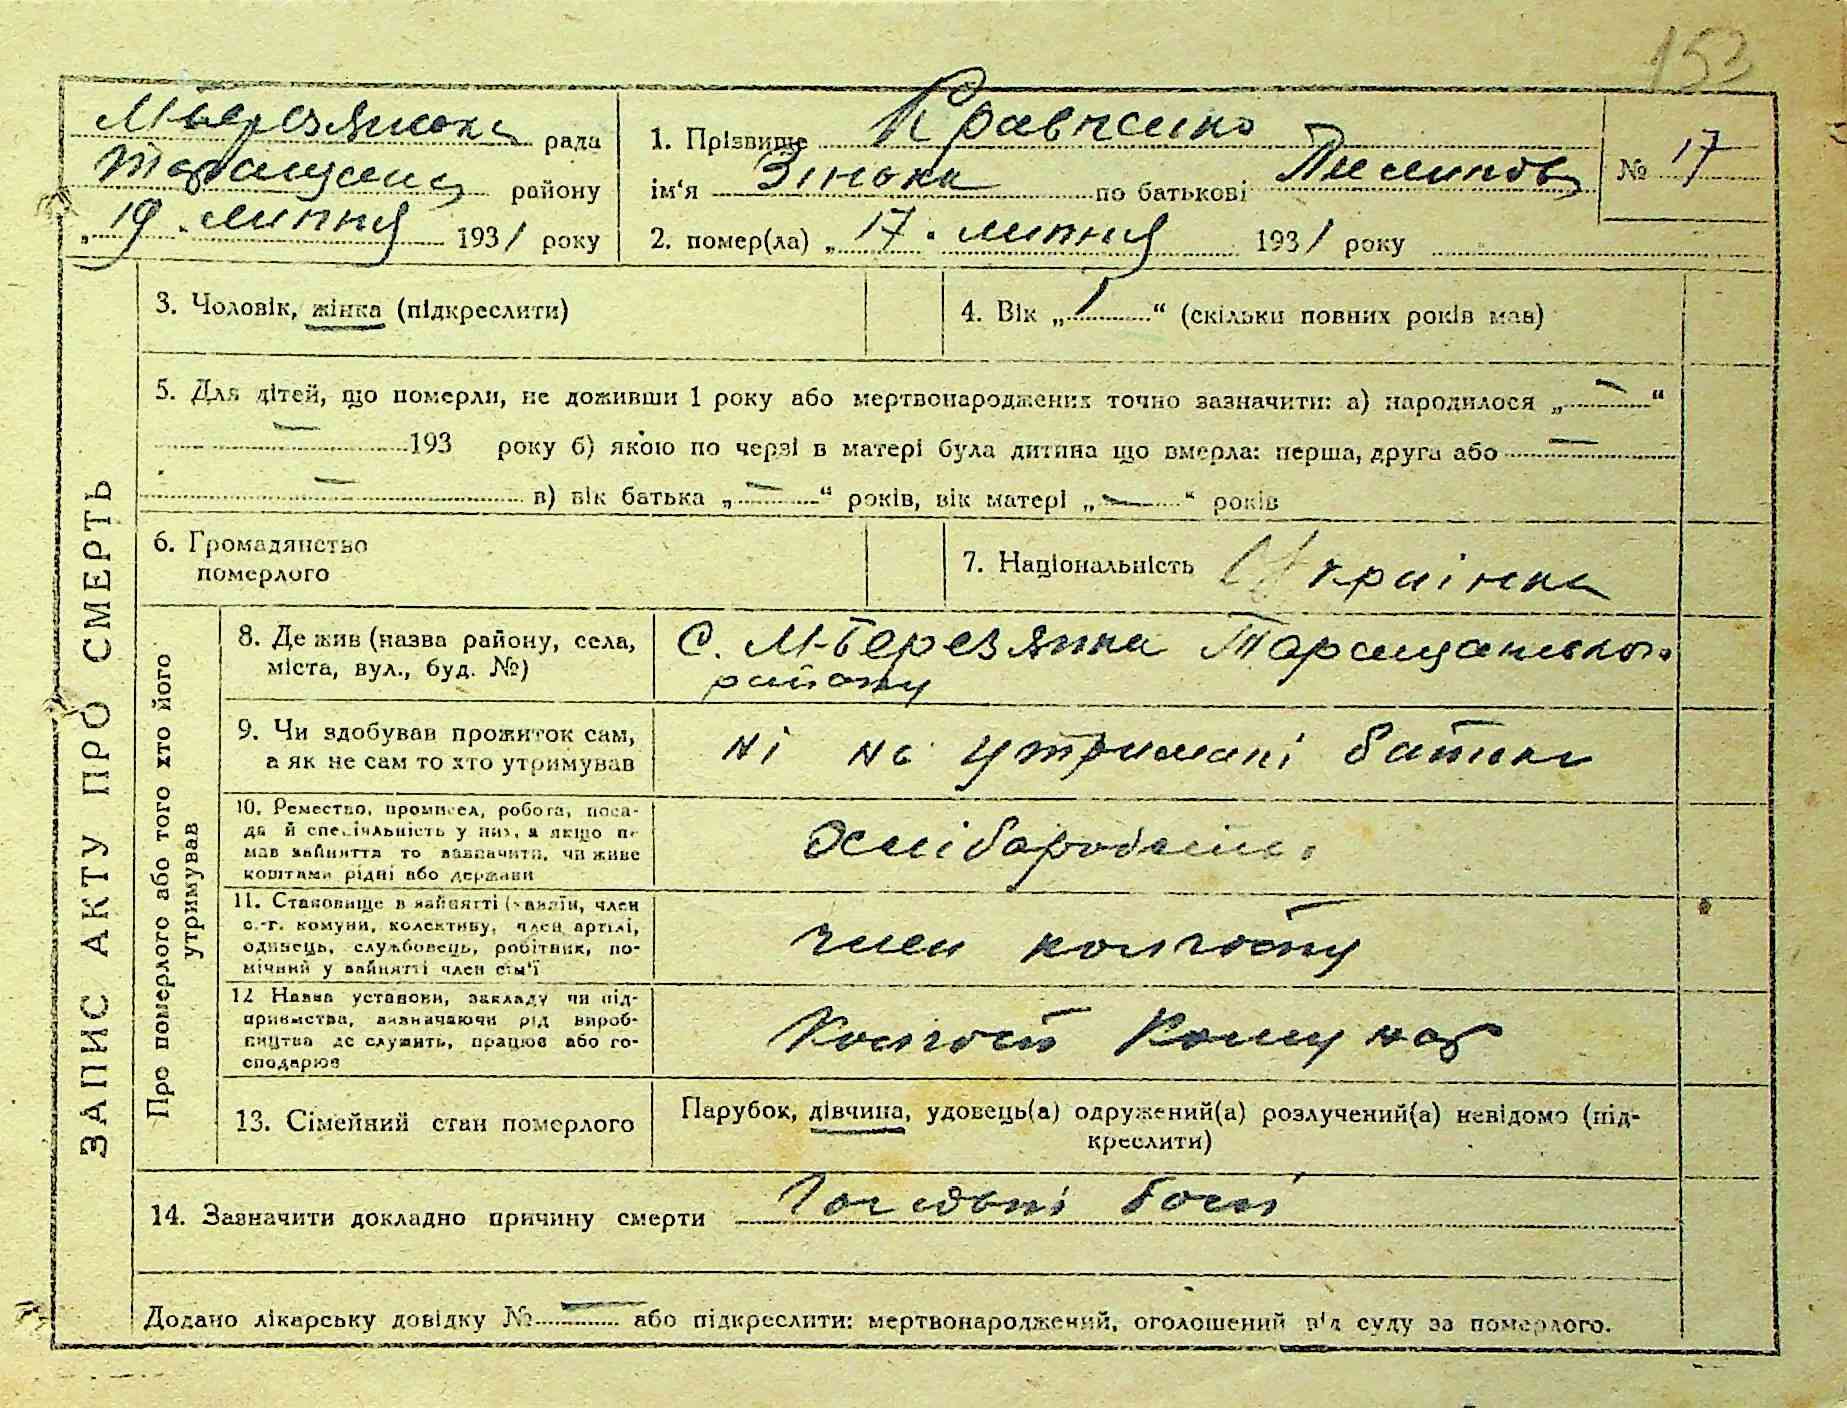 153
М-Березянська рада
Таращанськ. району
„19„ липня 1931 року
1. Прізвище Кравченко
ім‘я Зінька по батькові Пилипов.
№ 17
2. помер(ла) „17„ липня 1931 року
ЗАПИС АКТУ ПРО СМЕРТЬ
3. Чоловік, жінка (підкреслити)
4. Вік „1“ (скільки повних років мав)
5. Для дітей, що померли, не доживши 1 року або мертвонароджених точно зазначити: а) народилося „—“
— 193 року б) якою по черзі в матері була дитина що вмерла: перша, друга або —
— в) вік батька „—“ років, вік матері „—“ років
6. Громадянство
померлого
7. Національність Українка
Про померлого або того хто його
утримував
8. Де жив (назва району, села,
міста, вул., буд. №)
С. М-Березянка Таращанського
району
9. Чи здобував прожиток сам,
а як не сам то хто утримував
ні на утримані батька
10. Ремество, промисел, робота, поса-
да й спеціяльність у них, а якщо не
мав зайняття то зазначити, чи живе
коштами рідні або держави
Хліборобств.
11. Становище в зайнятті (хазяїн, член
с.-г. комуни, колективу, член артілі,
одинець, службовець, робітник, по-
мічний у зайнятті член сім‘ї
член колгоспу
12 Назва установи, закладу чи під-
приємства, визначаючи рід вироб-
ництва де служить, працює або го-
сподарює
Колгосп Комунар
13. Сімейний стан померлого
Парубок, дівчина, удовець(а) одружений(а) розлучений(а) невідомо (під-
креслити)
14. Зазначити докладно причину смерти болі
Додано лікарську довідку № — або підкреслити: мертвонароджений, оголошений від суду за померлого.